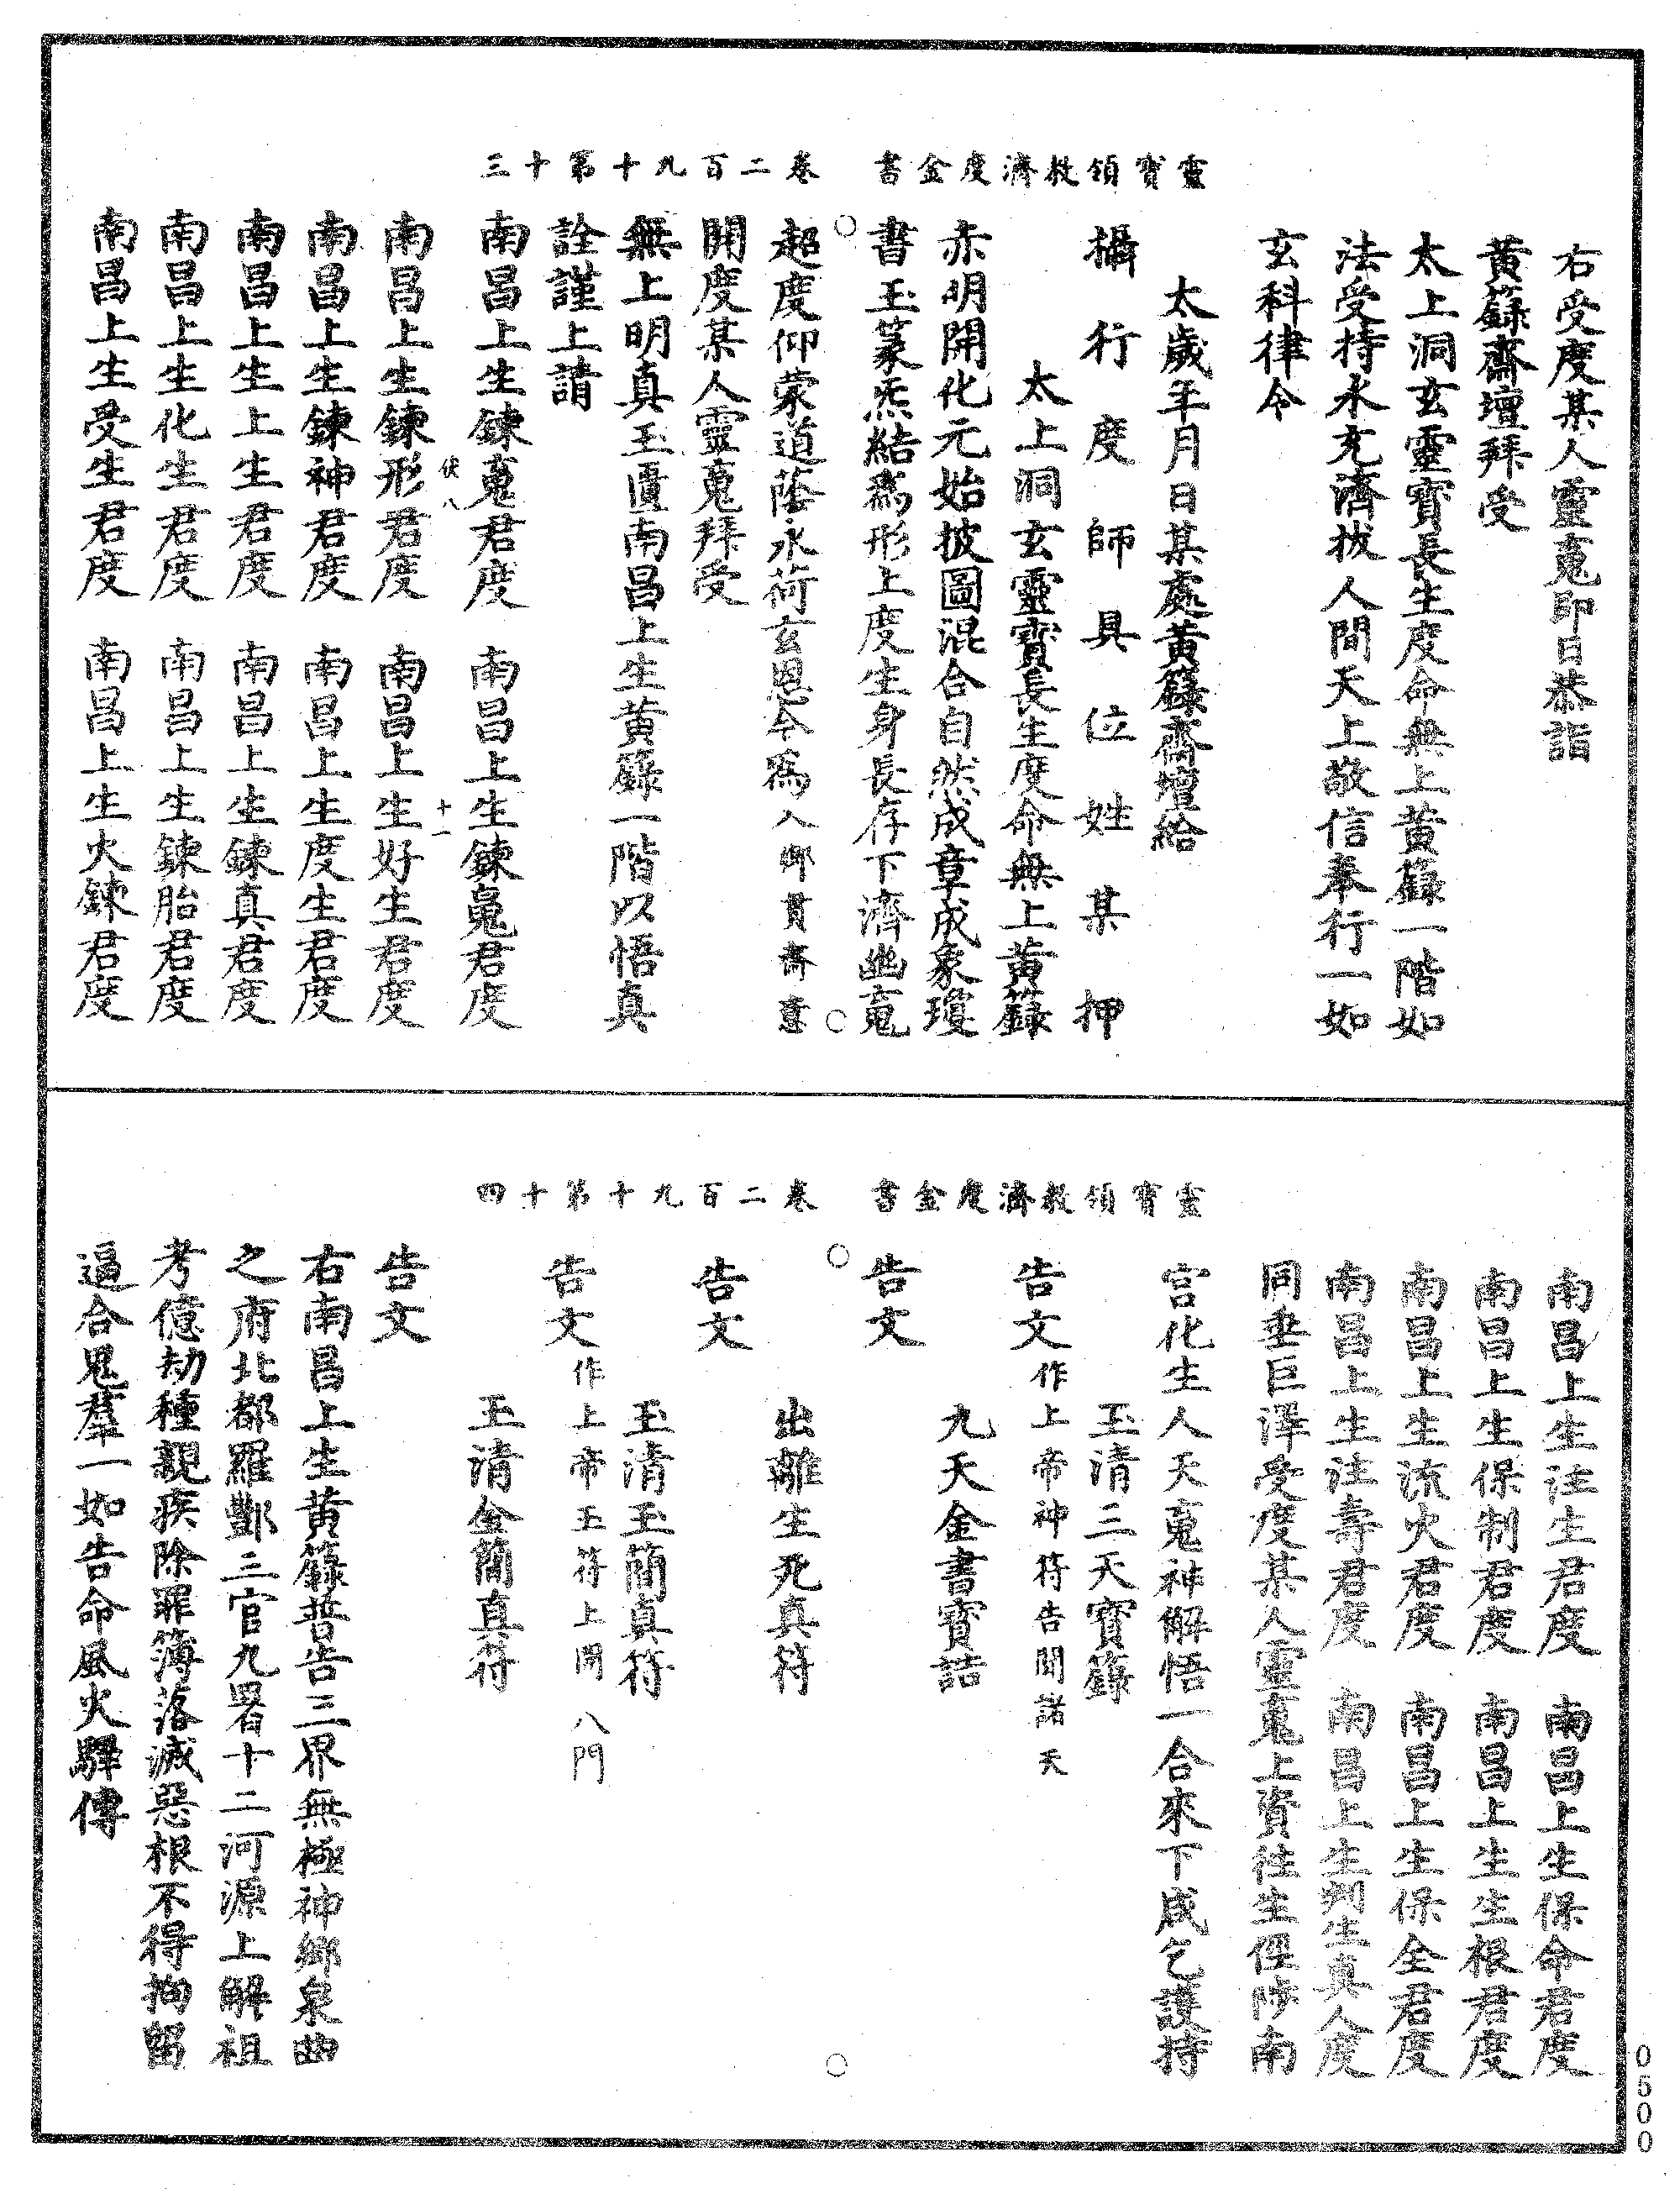 靈寶領教濟度金書　卷二百九十第十三
右受度某人靈䰟即日恭詣
黃籙齋壇拜受
太上洞玄靈寶長生度命無上黃籙一階如
法受持永充濟拔人間天上敬信奉行一如
玄科律令
太歲年月日某處黃籙齋壇給
攝行度師具位姓某押
太上洞玄靈寶長生度命無上黃籙
赤明開化元始披圖混合自然成章成象瓊
書玉篆炁結爲形上度生身長存下濟幽䰟
超度仰蒙道蔭永荷玄恩今爲入鄉貫齋意
開度某人靈䰟拜受
無上明真玉匱南昌上生黃籙一階以悟真
詮謹上請
南昌上生鍊䰟君度　南昌上生鍊魄君度
伏八　十一
南昌上生鍊形君度　南昌上生好生君度
南昌上生鍊神君度　南昌上生度生君度
南昌上生上生君度　南昌上生鍊真君度
南昌上生化生君度　南昌上生鍊胎君度
南昌上生受生君度　南昌上生火鍊君度
靈寶領教濟度金書　卷二百九十第十四
南昌上生注生君度　南昌上生保命君度
南昌上生保制君度　南昌上生生根君度
南昌上生流火君度　南昌上生保全君度
南昌上生注壽君度　南昌上生判生真人度
同垂巨澤受度某人靈䰟上資往生徑陟南
宮化生人天䰟神解悟一合來下咸乞護持
玉清三天寶籙
告文作上帝神符告聞諸天
九天金書寶誥
告文
出離生死真符
告文
玉清玉簡真符
告文作上帝玉符上開八門
玉清金簡真符
告文
右南昌上生黃籙普告三界無極神鄉泉曲
之府北都羅酆三官九署十二河源上解祖
考億劫種親疾除罪簿落滅惡根不得拘留
逼合鬼羣一如告命風火驛傳
0500